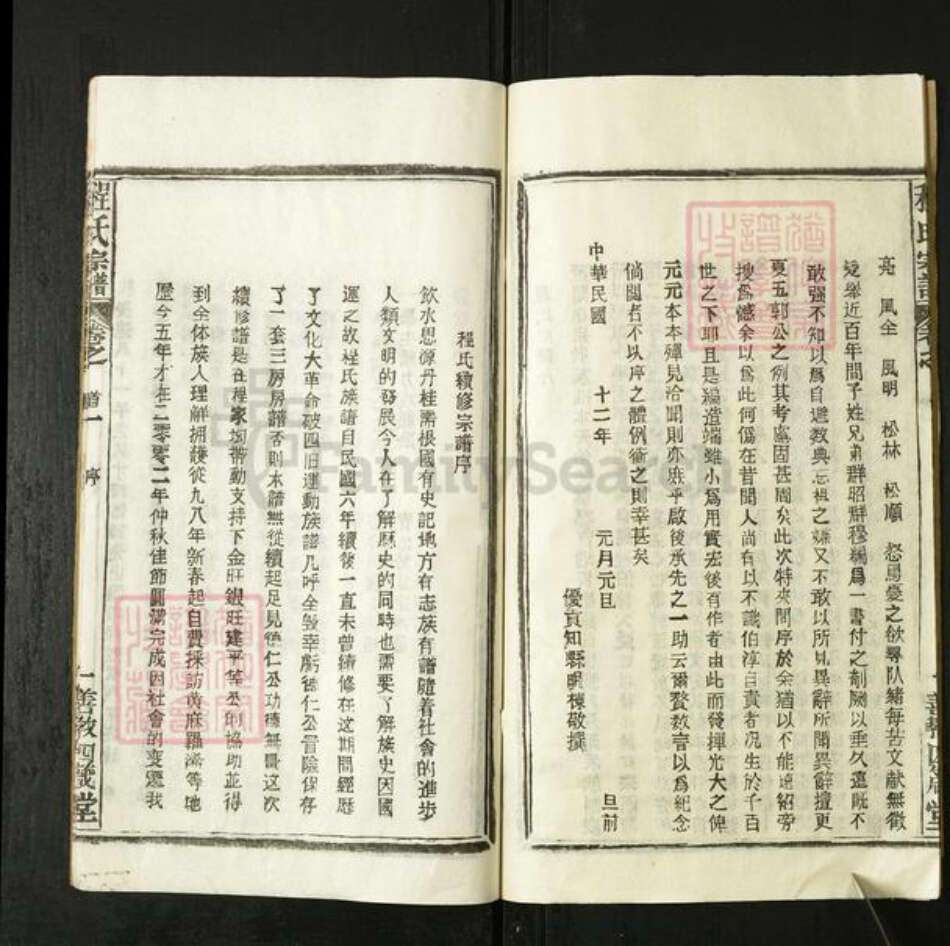 亮 風全 風明 松林 松順 怒焉憂之欲尋队緒每苦文献無徵
爰舉近百年間子姓兄弟群昭群穆編爲一書付之剞劂以垂久遠既不
敢强不知以爲自遯数典忘祖之嫌又不敢以所見異辭所聞異辭擅更
夏五郭公之例其考處固甚周矣此次特來問序於余猶以不能遠紹旁
搜爲憾余以爲此何傷在昔聞人尚有以不識伯淳自責者况生於千百
世之下耶且是編造端雖小爲用實宏後有作者由此而發揮光大之俾
元元本本殫見洽聞則亦庶乎啟後承先之一助云爾贅数言以爲紀念
倘閱者不以序之體例衡之則幸甚矣
中華民國 十二年 元月元旦 旦前
優貢知縣 棟敬撰
程氏續修宗譜序
飲水思源丹桂 根國有史記地方有志族有譜隨着社會的進步
人類文明的發展今人在了解歷史的同時也需要了解族史因國
運之故程氏族譜自民國六年續後一直未曾續修在这期間經歷
了文化大革命破四旧運動族譜几呼全毀幸虧德仁公冒險保存
了一套三房房譜否則木譜無從續起足見德仁公功德無量这次
續修譜是在程家坳帶動支持下金旺銀旺建平等公的協助並得
到全体族人理解拥護從九八年新春起自費採訪黄麻羅 等地
歷今五年才在二零零二年仲秋佳節圓滿完成因社會的变遷我
程氏宗譜 卷之一 首一 序 一善教四箴堂
FamilySearch